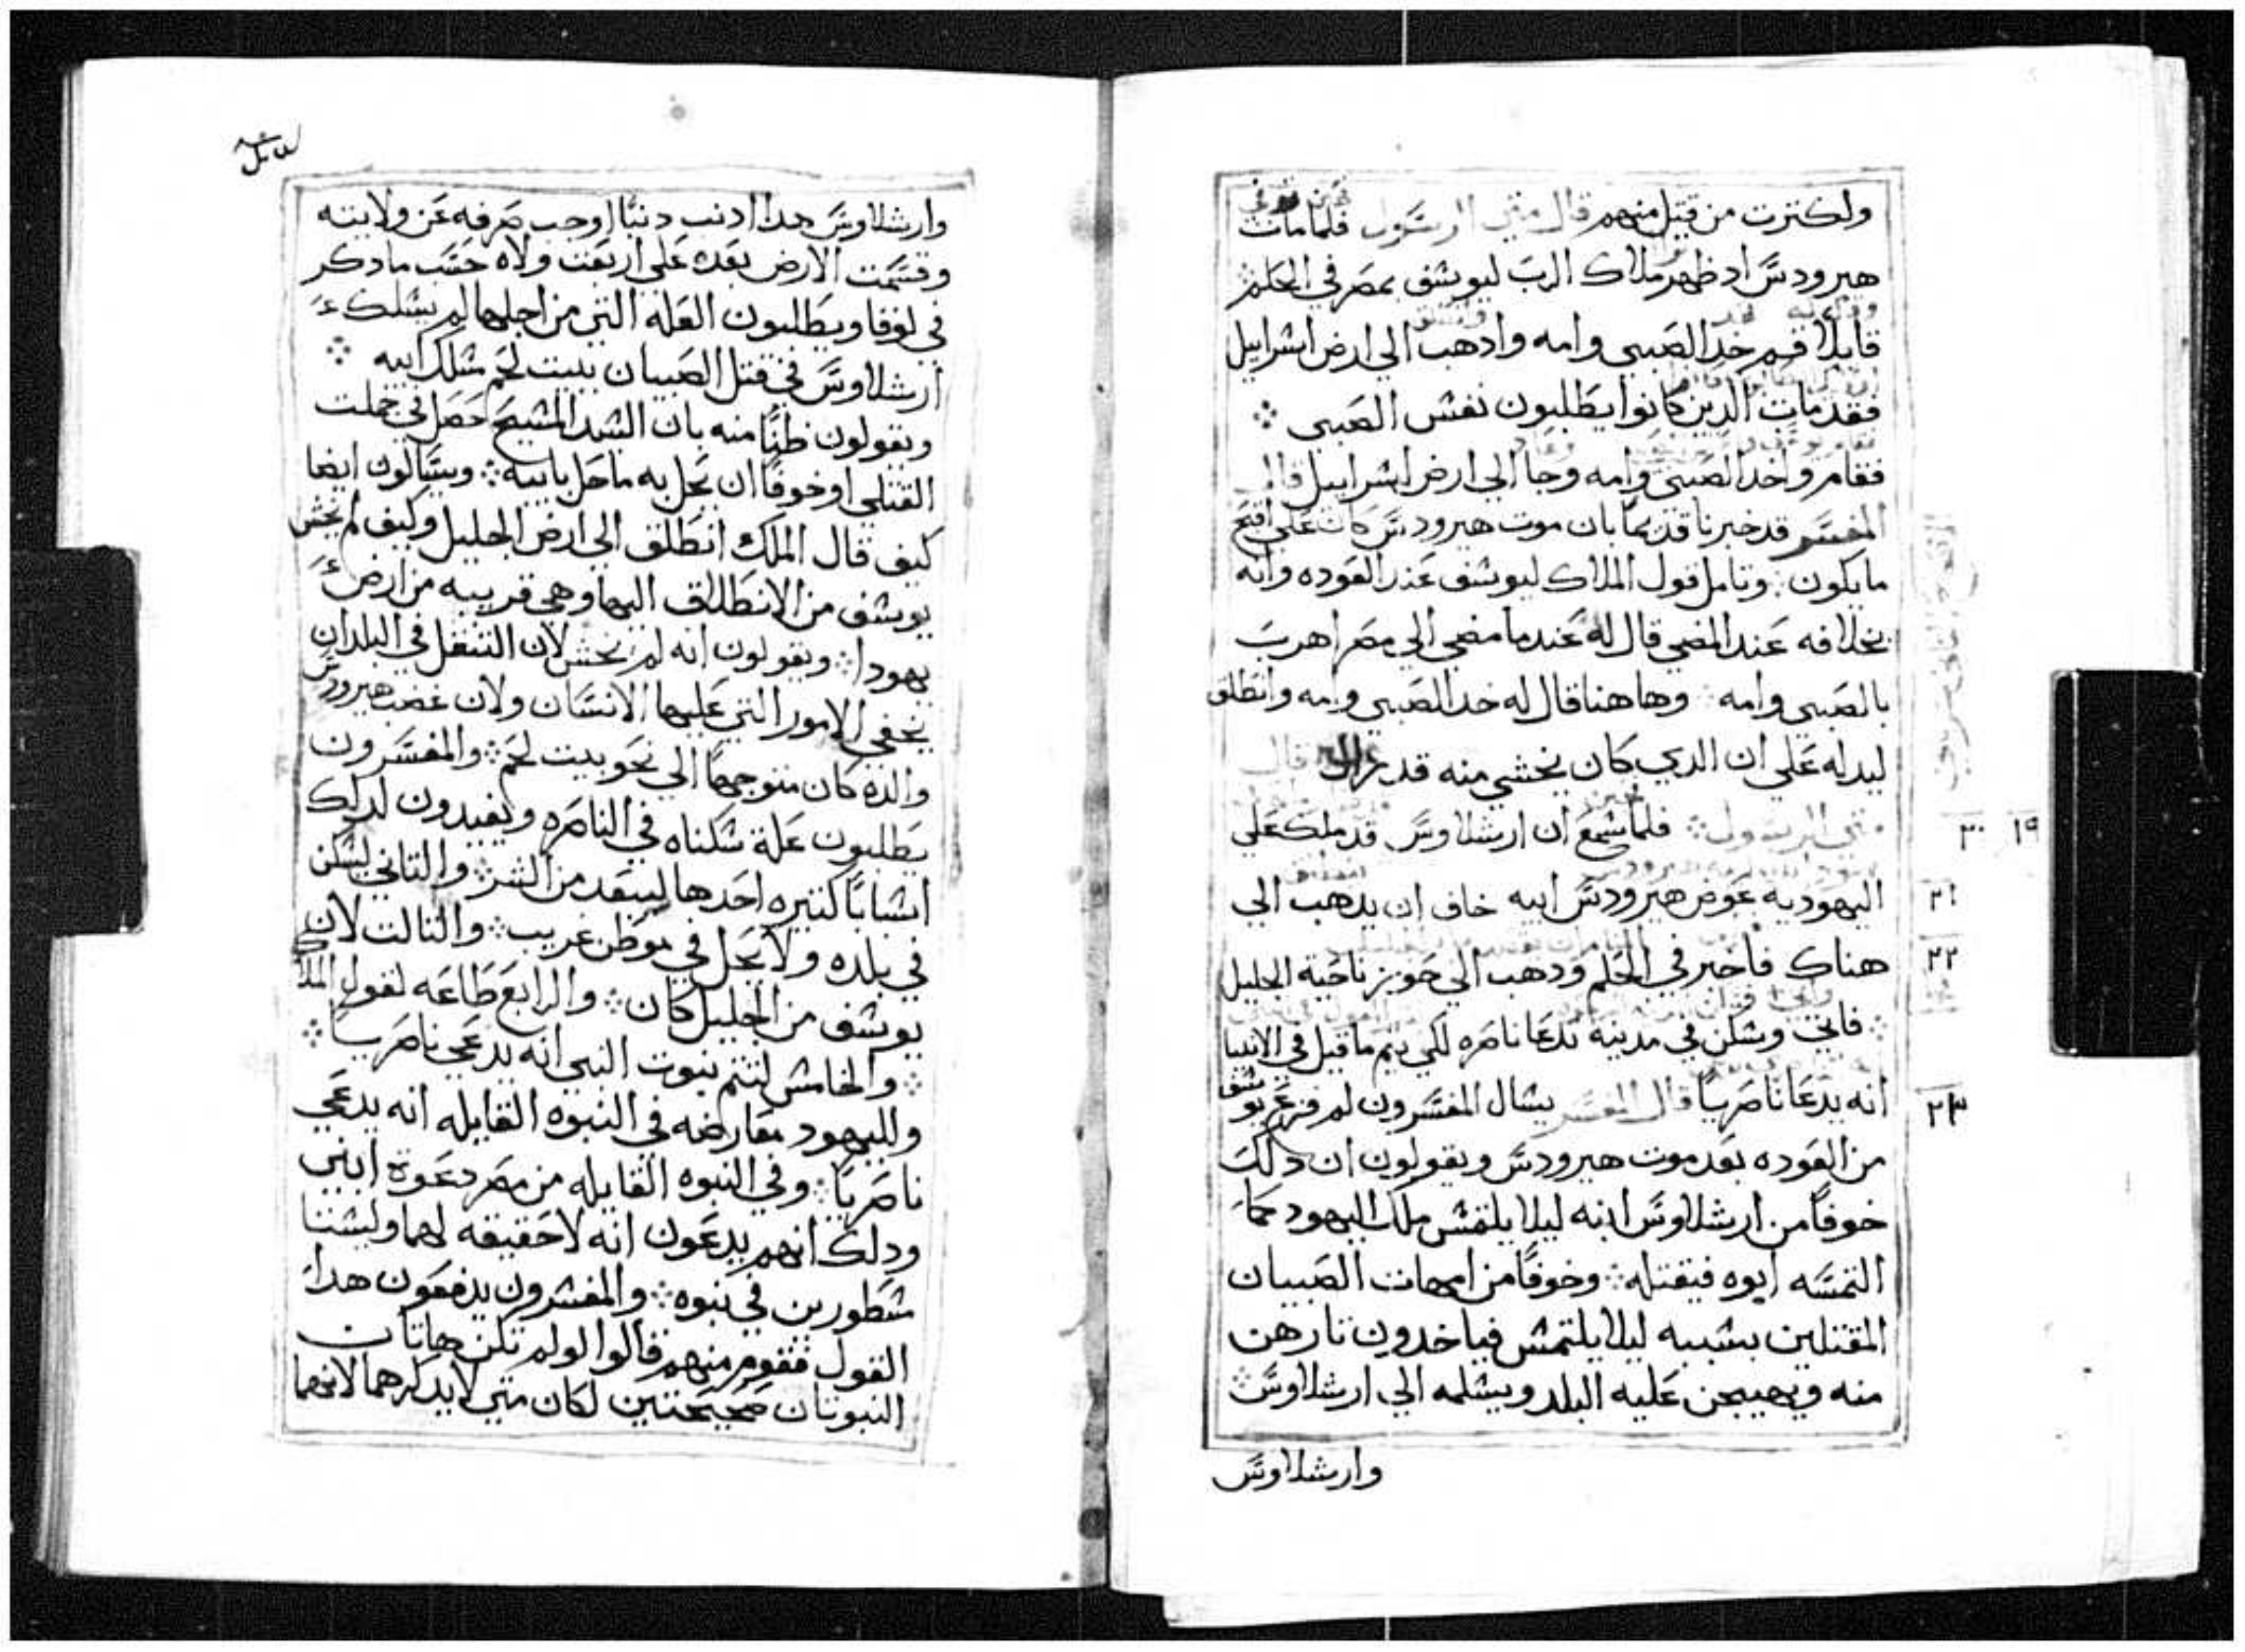 ولكترت من قتيل منهم قال متي الرسول فلما مات
هيرودس اد ظهر ملاك الرب ليوسف بمصر في الحلم
قايلا قم خد الصبي وامه وادهب الي ارض اسراييل
فقد مات الدين كانوا يطلبون نفس الصبي
فقام واخد الصبي وامه وجا الي ارض اسراييل قال
المفسر قد خبرنا قديما بان موت هيرودس كان علي اقبح
ما يكون وتامل قول الملاك ليوسف عند العوده وانه
بخلافه عند المضي قال له عندما مضي الي مصر اهرب
بالصبي وامه وهاهنا قال له خد الصبي وامه وانطلق
ليدله علي ان الدي كان يخشي منه قد زال قال
متي الرسول فلما سمع ان ارشلاوس قد ملك علي
اليهوديه عوض هيرودس ابيه خاف ان يدهب الي
هناك فاخبر في الحلم ودهب الي حوبز ناحية الجليل
فاتي وسكن في مدينة تدعا ناصره لكي يتم ما قيل في الانبيا
انه يدعا ناصريا قال المفسر يسال المفسرون لم فزع يوسف
من العوده بعد موت هيرودس ويقولون ان دلك
خوفا من ارشلاوس ابنه ليلا يلتمس ملك اليهود كما
التمسه ابوه فيقتله وخوفا من امهات الصبيان
المقتلين بسببه ليلا يلتمس فياخدون تارهن
منه ويهيجن عليه البلد ويسلمه الي ارشلاوس
وارشلاوس
١٩ ٢٠
٢١
٢٢
٢٣
وارشلاوس هدا ادنب دنبا اوجب صرفه عن ولايته
وقسمت الارض بعده علي اربعت ولاه حسب ما دكر
في لوقا ويطلبون العله التي من اجلها لم يسلك
ارشلاوس في قتل الصبيان ببيت لحم مسلك ابيه
ويقولون ظنا منه بان السيد المسيح حصل في جملت
القتلي او خوفا ان يحل به ما حل بابيه ويسالون ايضا
كيف قال الملك انطلق الي ارض الجليل وكيف لم يخش
يوسف من الانطلاق اليها وهي قريبه من ارض
يهودا ويقولون انه لم يخش لان التنقل في البلدان
يخفي الامور التي عليها الانسان ولان غضب هيرودس
والده كان متوجها الي نحو بيت لحم والمفسرون
يطلبون علة سكناه في الناصره ويفيدون لدلك
اسبابا كتيره احدها ليبتعد من الشر والتاني ليسكن
في بلده ولا يحل في موطن غريب والتالت لان
يوسف من الجليل كان والرابع طاعه لقول الملاك
والخامس لتتم نبوت النبي انه يدعي ناصريا
ولليهود معارضه في النبوه القايله انه يدعي
ناصريا وفي النبوه القايله من مصر دعوة ابني
ودلك انهم يدعون انه لا حقيقه لهما وليستا
مسطورين في نبوه والمفسرون يدفعون هدا
القول فقوم منهم قالوا لو لم تكن هاتان
النبوتان صحيحتين لكان متي لا يدكرهما لانهما